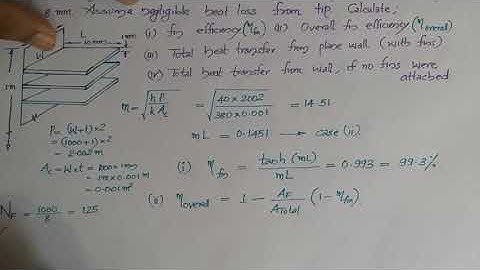 8 mm. Assume negligible heat loss from tip. Calculate;
(i) fin efficiency (ηfin) (ii) Overall fin efficiency (ηoverall)
(iii) Total heat transfer from plane wall (with fins)
(iv) Total heat transfer from wall, if no fins were attached
L
1mm
W
1m
m = √(hP/kAc) = √(40×2.002/380×0.001) = 14.51
mL = 0.1451 → case (ii).
P = (W+t)×2
= (1000+1)×2
= 2.002 m
Ac = W×t = 1000×1mm
= 1m×0.001m
= 0.001m²
NF = 1000/8 = 125
(i) ηfin = tanh(mL)/mL = 0.993 = 99.3%
ηoverall = 1 − AF/ATotal (1−ηfin)